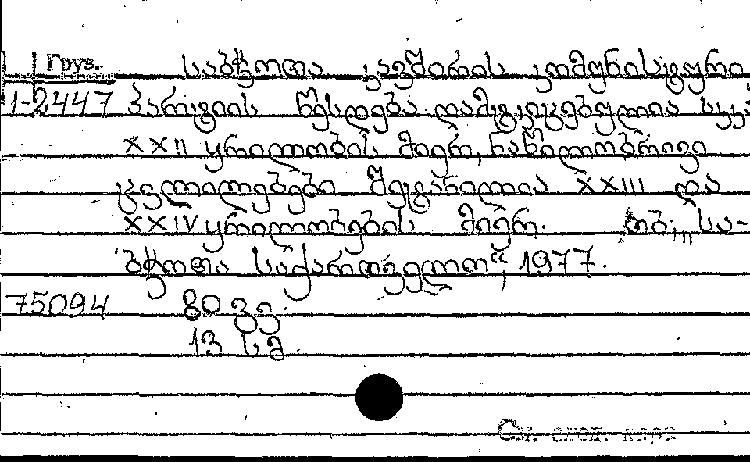 Груз. საბჭოთა კავშირის კომუნისტური
1-2447 პარტიის წესდება. დამტკიცებულია სკკპ
XXII ყრილობის მიერ, ნაწილობრივი
ცვლილებები შეტანილია XXIII და
XXIV ყრილობების მიერ. თბ., „სა-
ბჭოთა საქართველო“, 1977.
75094 80 გვ.
13 სმ
См. след. карт